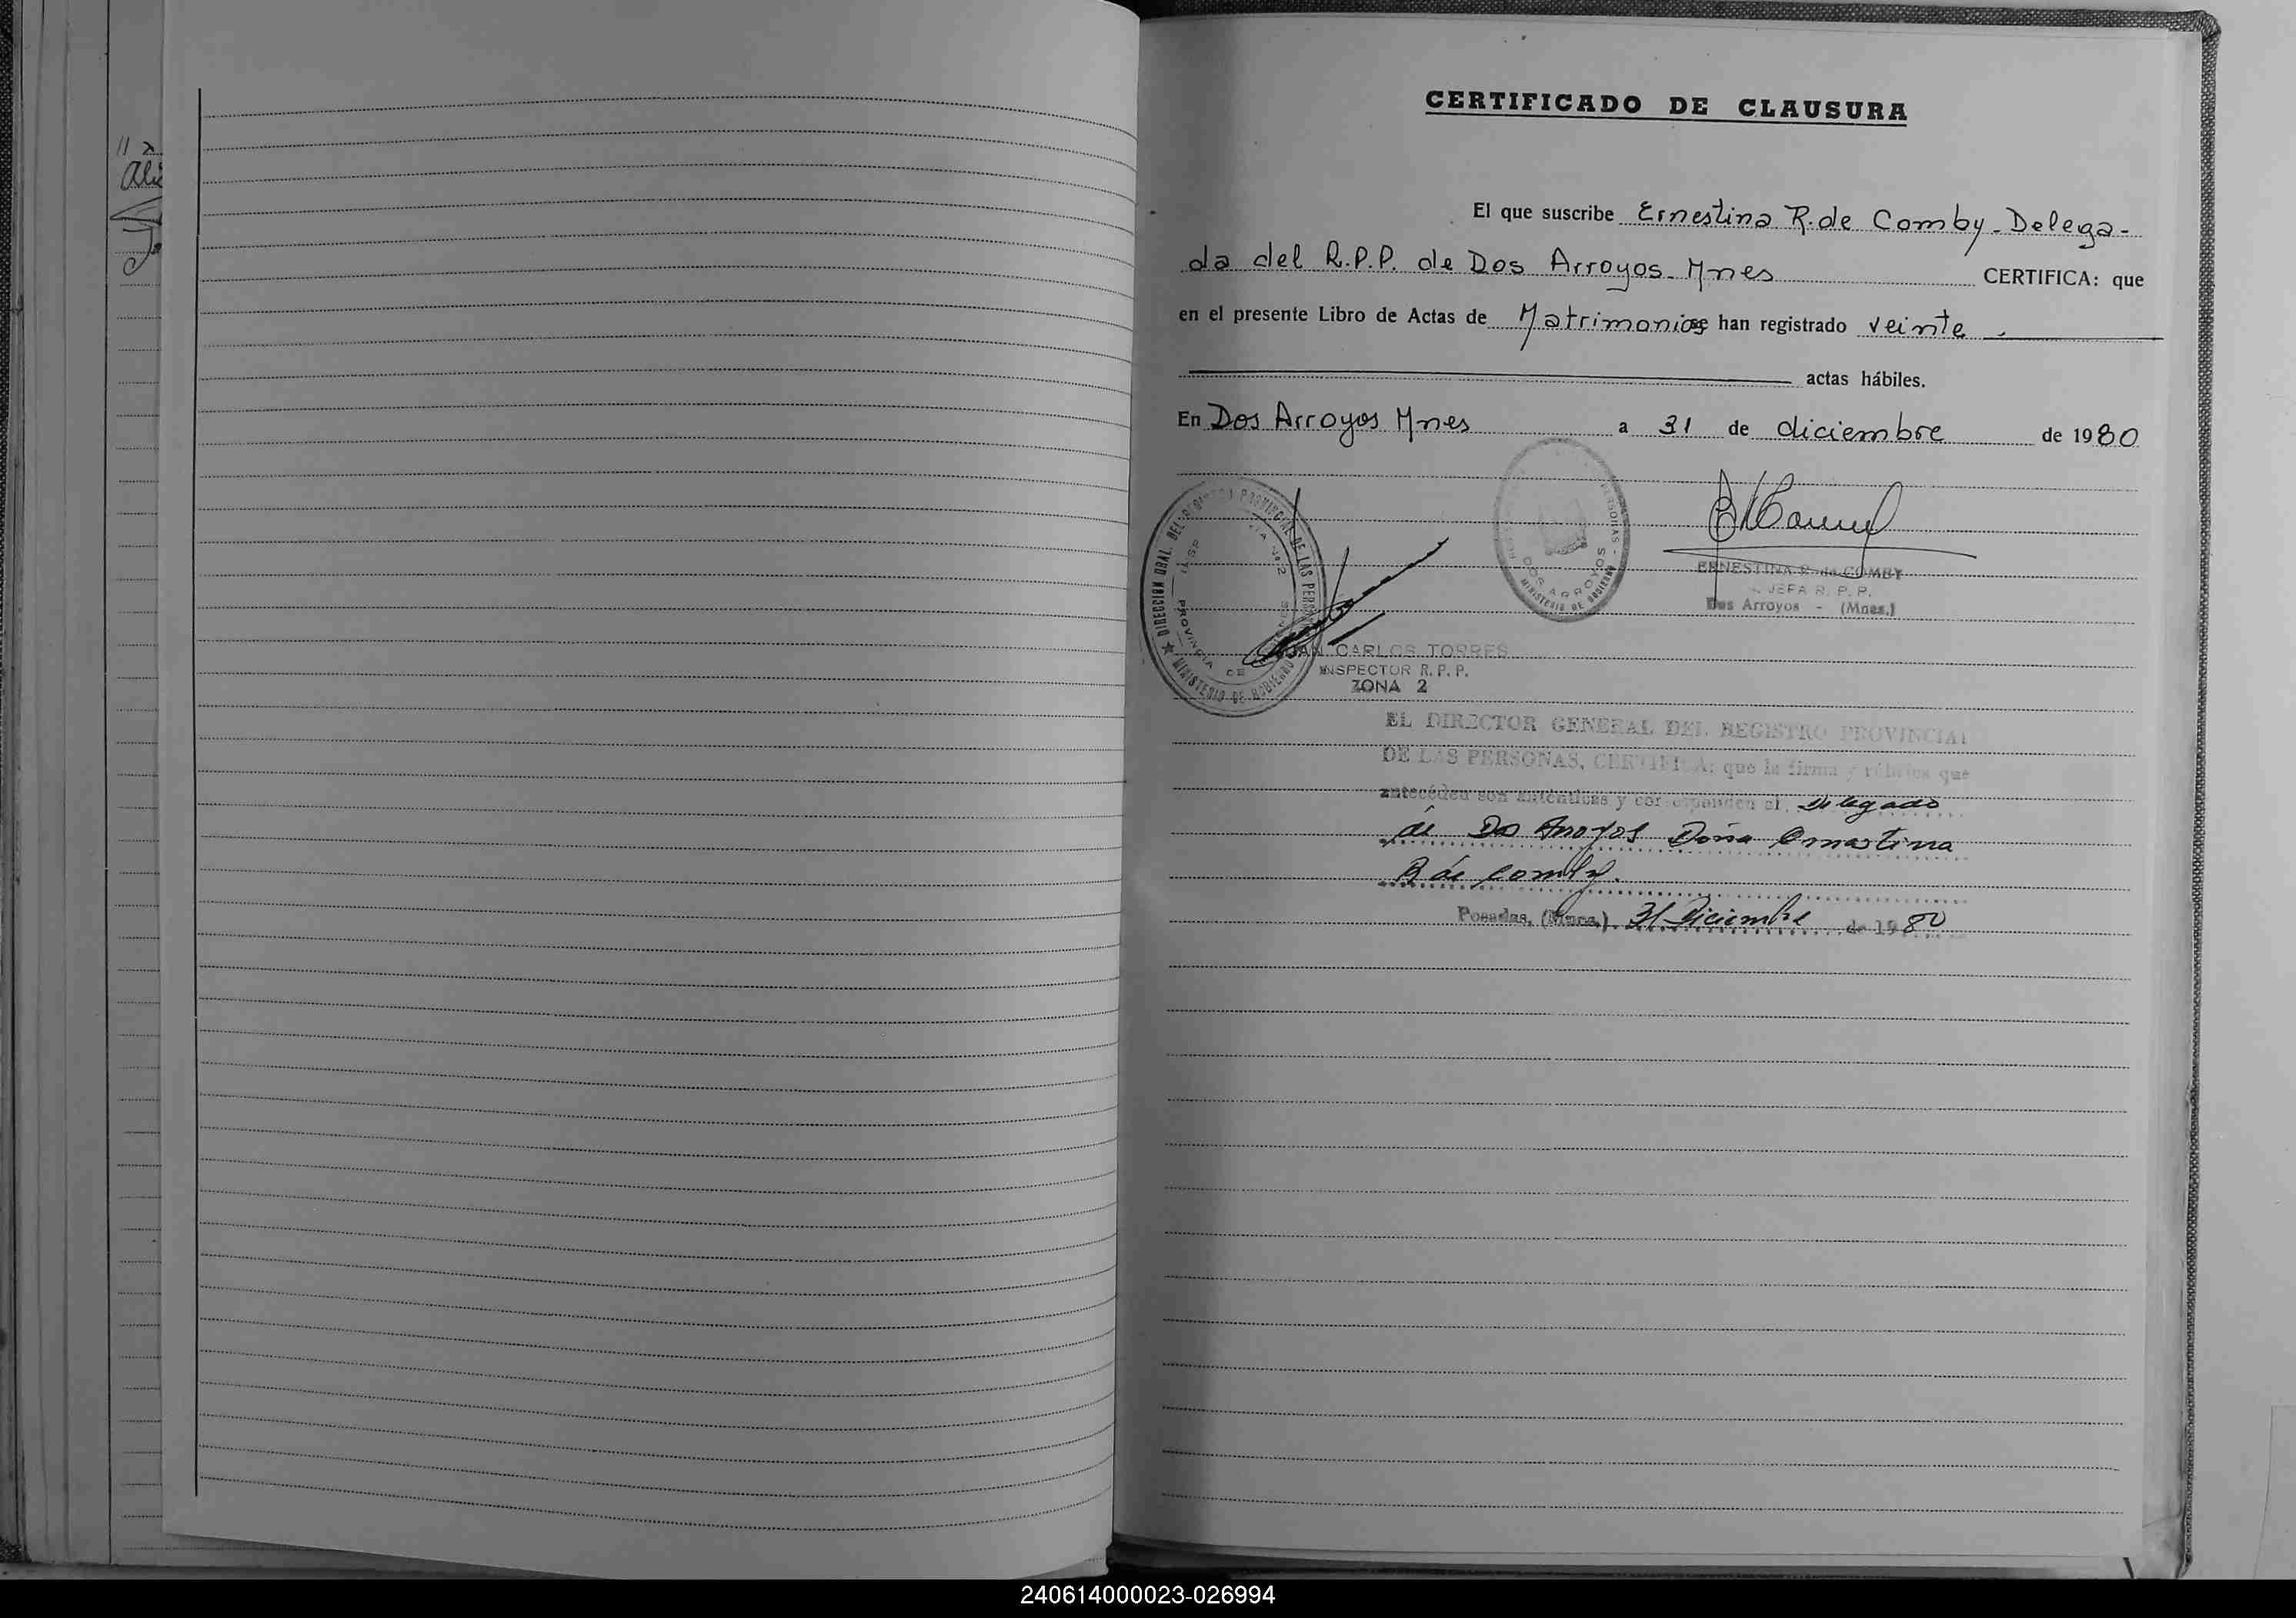 CERTIFICADO DE CLAUSURA
El que suscribe Ernestina R. de Comby - Delega-
da del R.P.P. de Dos Arroyos - Mnes CERTIFICA: que
en el presente Libro de Actas de Matrimonios se han registrado veinte
actas hábiles.
En Dos Arroyos Mnes a 31 de diciembre de 1980
DIRECCIÓN GRAL. DEL REGISTRO PROVINCIAL DE LAS PERSONAS
PROVINCIA DE
MINISTERIO DE GOBIERNO
PERSONAS
DOS ARROYOS
MINISTERIO DE GOBIERNO
ERNESTINA R. de COMBY
JEFA R. P. P.
Dos Arroyos - (Mnes.)
JUAN CARLOS TORRES
INSPECTOR R. P. P.
ZONA 2
EL DIRECTOR GENERAL DEL REGISTRO PROVINCIAL
DE LAS PERSONAS, CERTIFICA: que la firma y rúbrica que
anteceden son auténticas y corresponden al Delegado
de Dos Arroyos Doña Ernestina
R de Comby.
Posadas, (Mnes.) 31 Diciembre de 1980
240614000023-026994